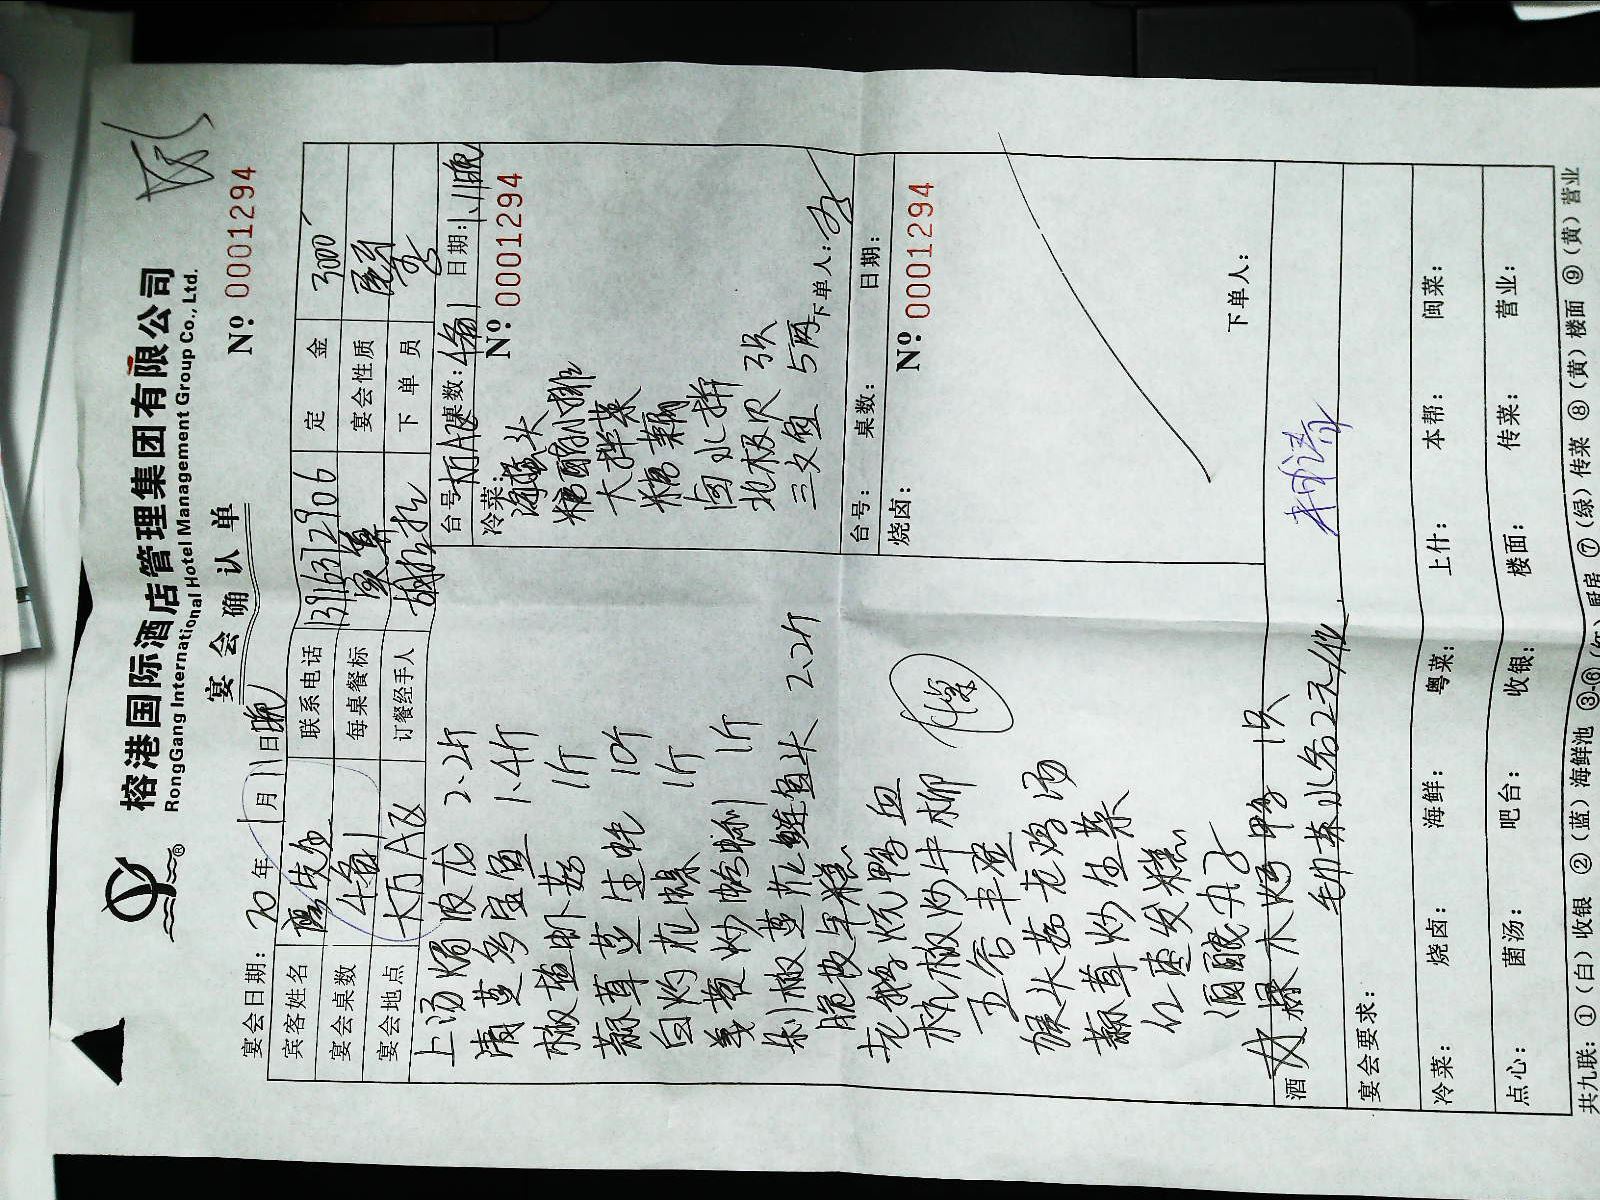 榕港国际酒店管理集团有限公司
RongGang International Hotel Management Group Co., Ltd.
宴会确认单
Nº 0001294
宴会日期: 20年1月11日晚
宾客姓名 联系电话 13163712906 定金 3000
宴会桌数 4备1 每桌餐标 宴会性质
宴会地点 大万A区 订餐经手人 下单员
台号: 大万A区 桌数: 4备1 日期: 1.11晚
冷菜:
Nº 0001294
海蜇头
糖醋小排
大拌菜
糖藕
卤水拼
北极贝 3只
三文鱼 5两
下单人:
上汤焗波龙 2.2斤
清蒸多宝鱼 1.4斤
椒盐虾菇 1斤
蒜茸蒸生蚝 10个
白灼花螺 1斤
姜葱炒蛤蜊 1斤
剁椒蒸花鲢鱼头 2.2斤
脆皮年糕
老鹅炕鸭血
杭椒炒牛柳
五谷丰登
猴头菇老鸡汤
蒜茸炒生菜
红枣发糕
酒酿丸子
台号: 桌数: 日期:
烧卤:
Nº 0001294
下单人:
酒
木烤鸭 1只
毛巾茶水各2元/位
宴会要求:
冷菜: 烧卤: 海鲜: 粤菜: 上什: 本帮: 闽菜:
点心: 菌汤: 吧台: 收银: 楼面: 传菜: 营业:
共九联: ①(白)收银 ②(蓝)海鲜池 ③-⑥(红)厨房 ⑦(绿)传菜 ⑧(黄)楼面 ⑨(黄)营业